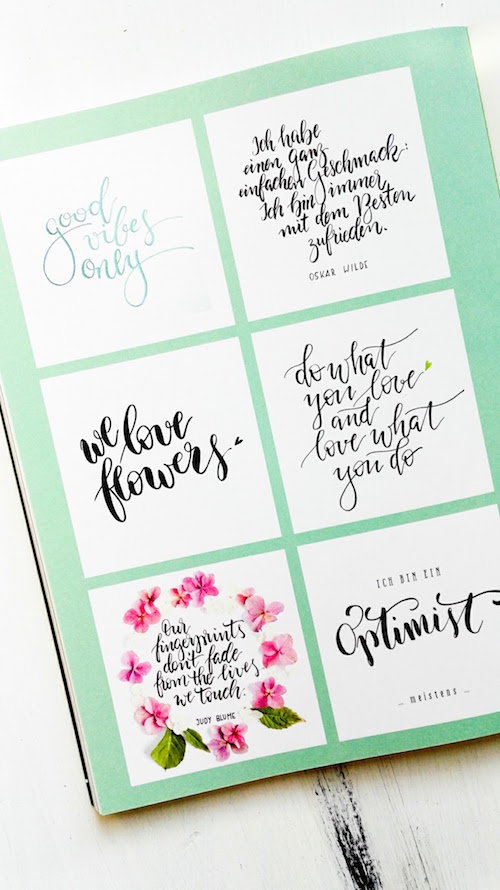 good
vibes
only
Ich habe
einen ganz
einfachen Geschmack:
Ich bin immer
mit dem Besten
zufrieden.
OSKAR WILDE
we love
flowers
do what
you love
and
love what
you do
Our
fingerprints
don't fade
from the lives
we touch.
JUDY BLUME
ICH BIN EIN
Optimist
– meistens –